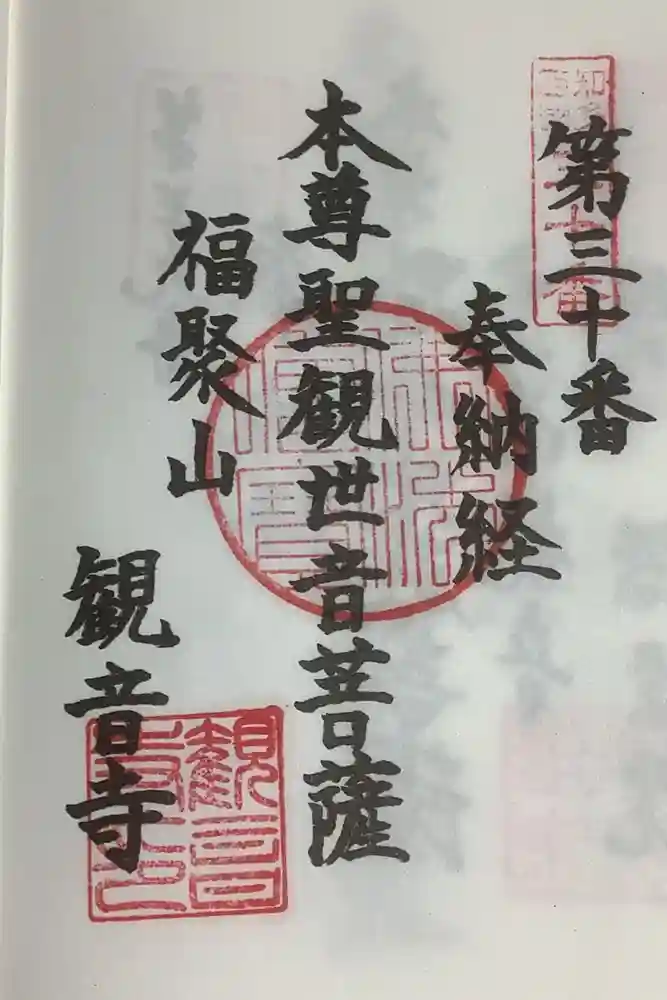 第三十番
奉納経
本尊聖観世音菩薩
福聚山
観音寺